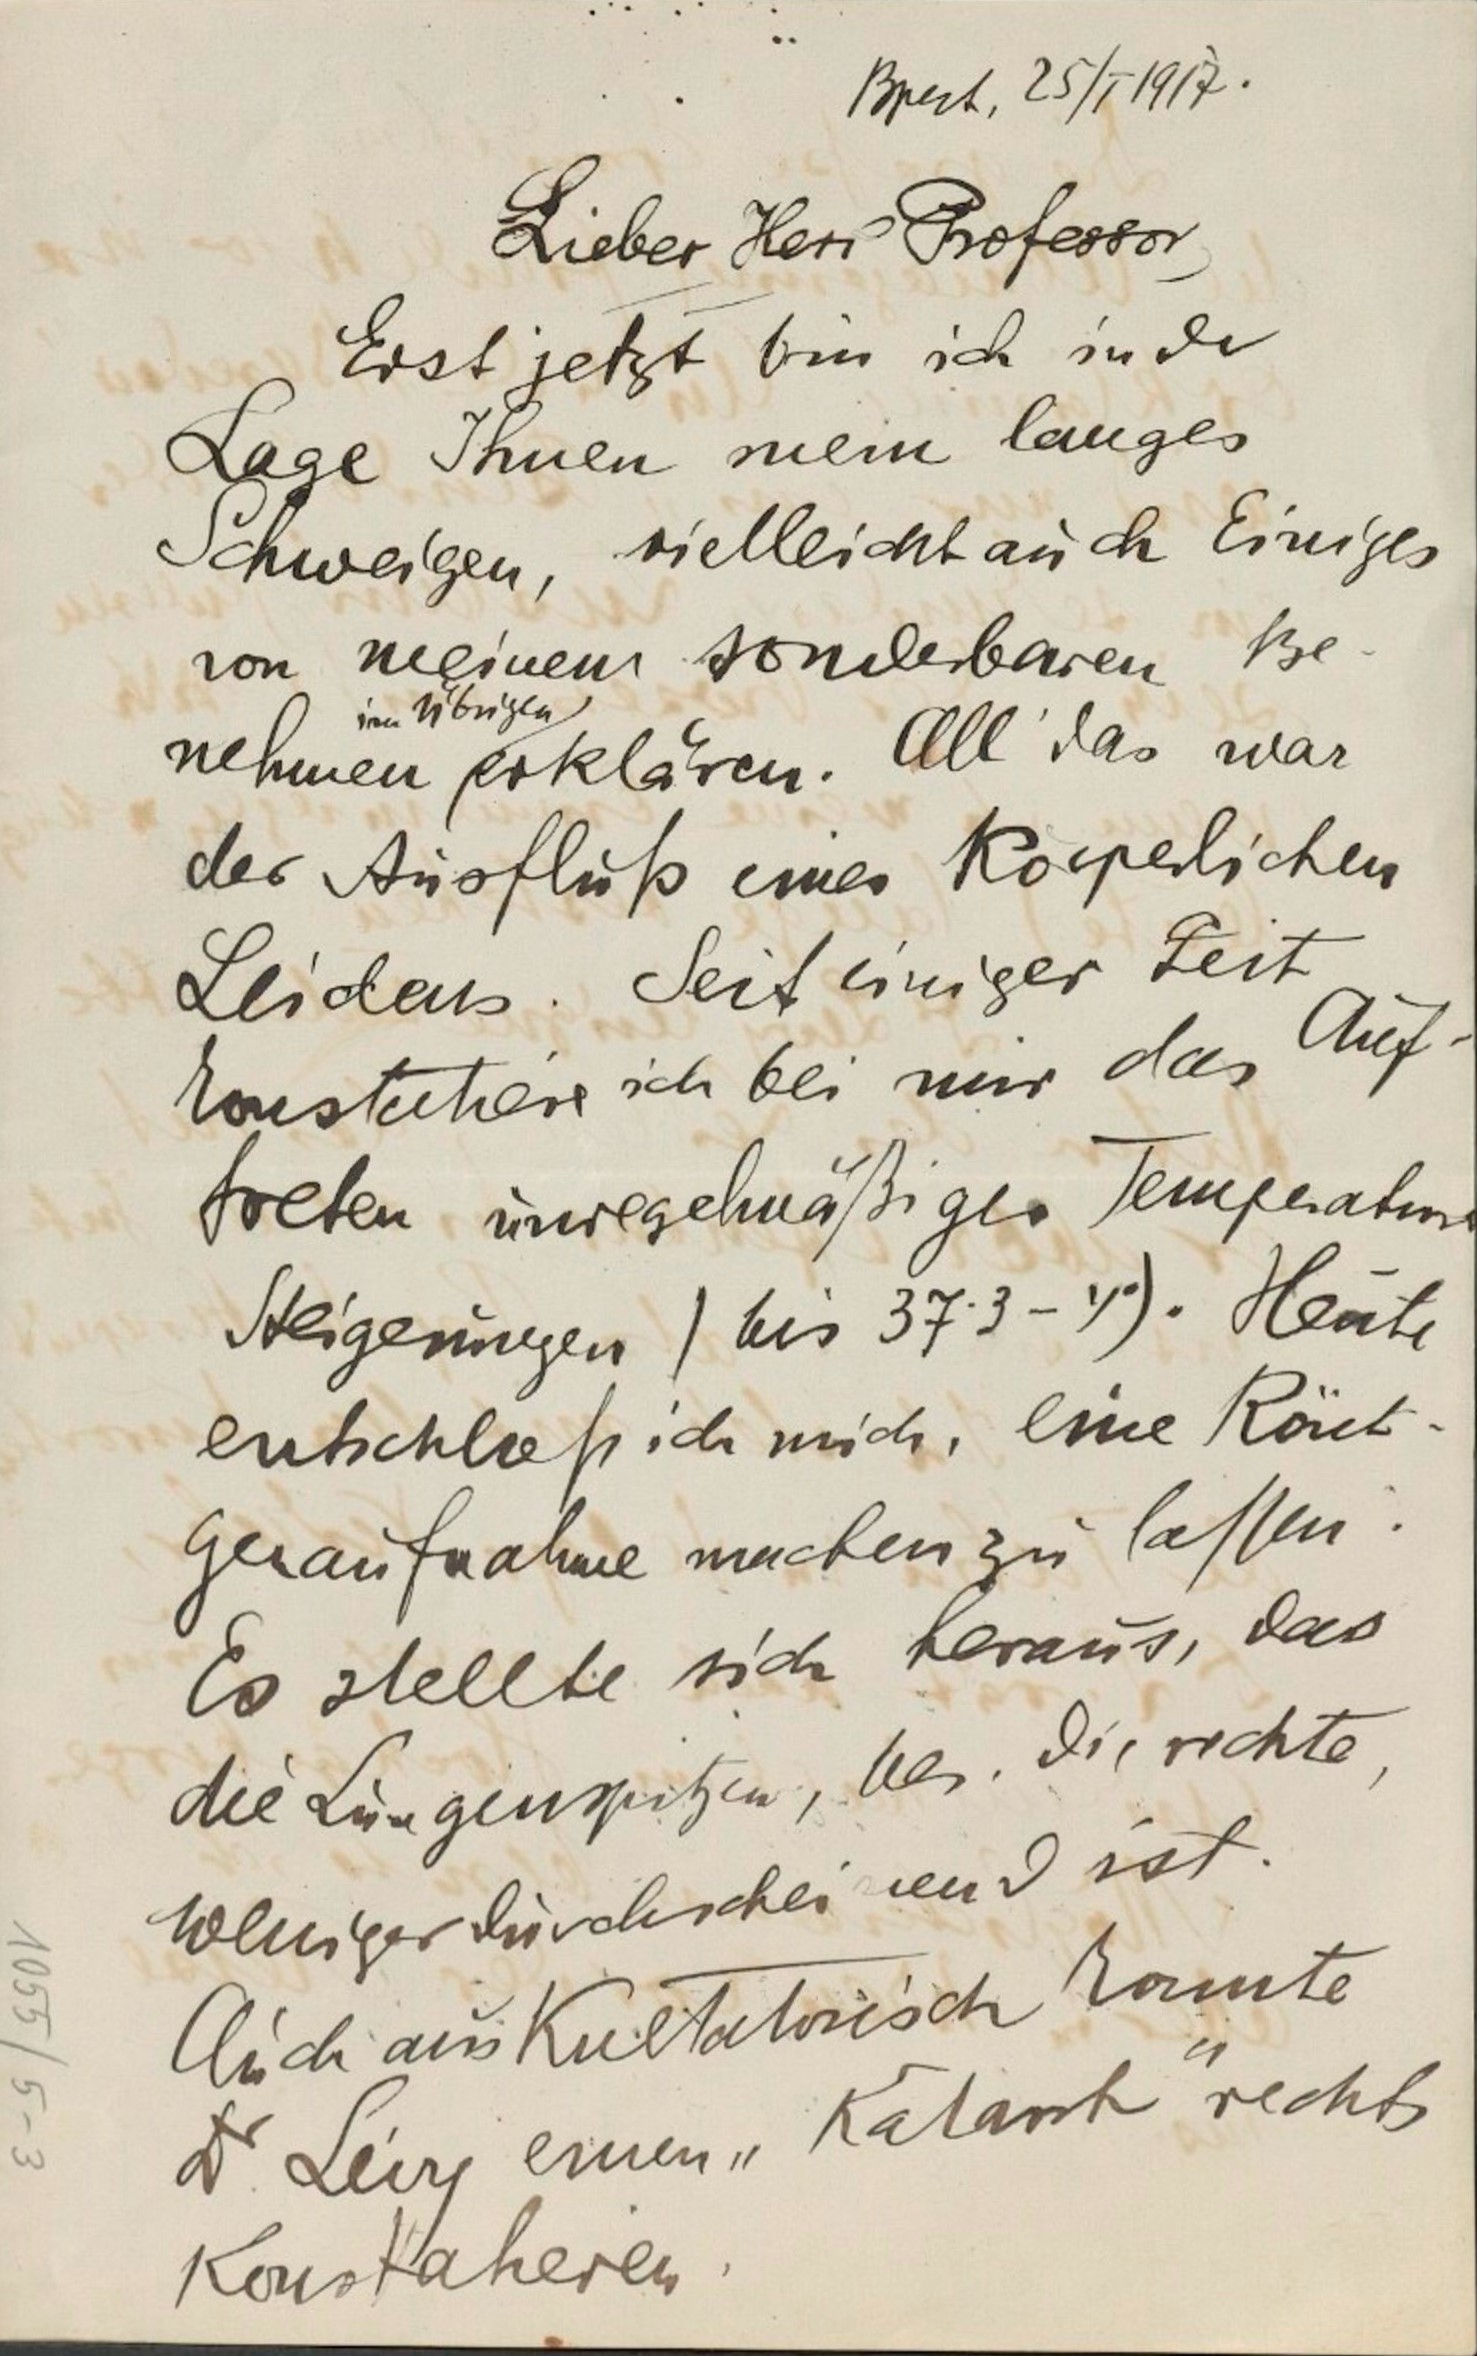 Bpest, 25/I 1917.
Lieber Herr Professor,
Erst jetzt bin ich in der
Lage Ihnen mein langes
Schweigen, vielleicht auch Einiges
von meinem sonderbaren Be-
im Übrigen
nehmen erklären. All' das war
der Ausfluß eines Körperlichen
Leidens. Seit einiger Zeit
konstatiere ich bei mir das Auf-
treten unregelmäßiger Temperatur
Steigerungen (bis 37·3–4°). Heute
entschloß ich mich, eine Rönt-
genaufnahme machen zu lassen.
Es stellte sich heraus, das
die Lungenspitzen, bes. die rechte,
weniger durchscheinend ist.
Auch auskultatorisch konnte
Dr Lévy einen „Katarrh" rechts
Konstatieren.
1055/5-3